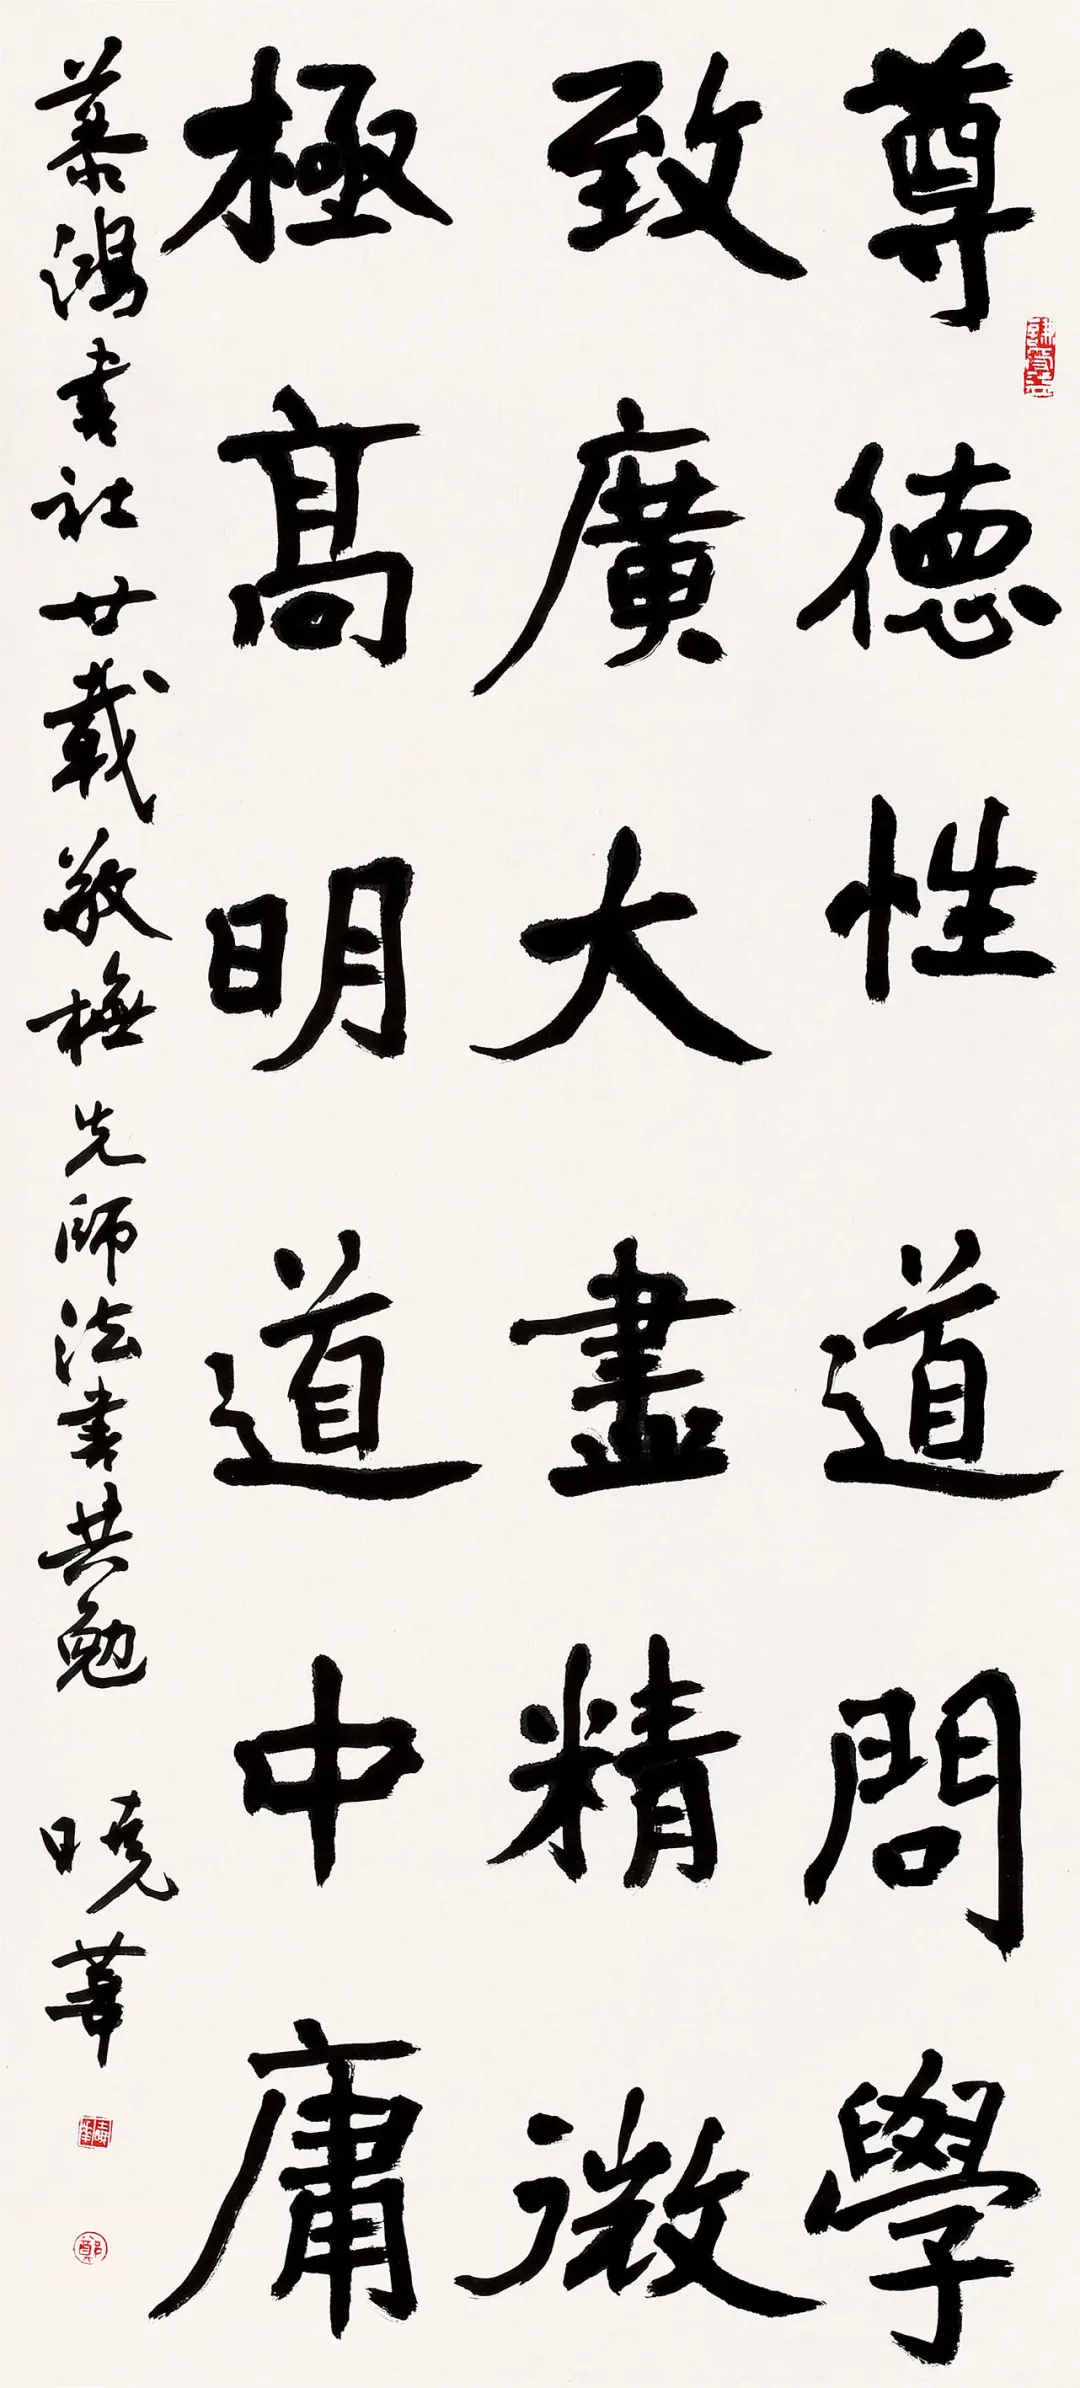 尊德性道問學
謙受益
致廣大盡精微
極高明道中庸
慕鴻書社廿載敬橅先師法書共勉 曉華
曉華
鄭